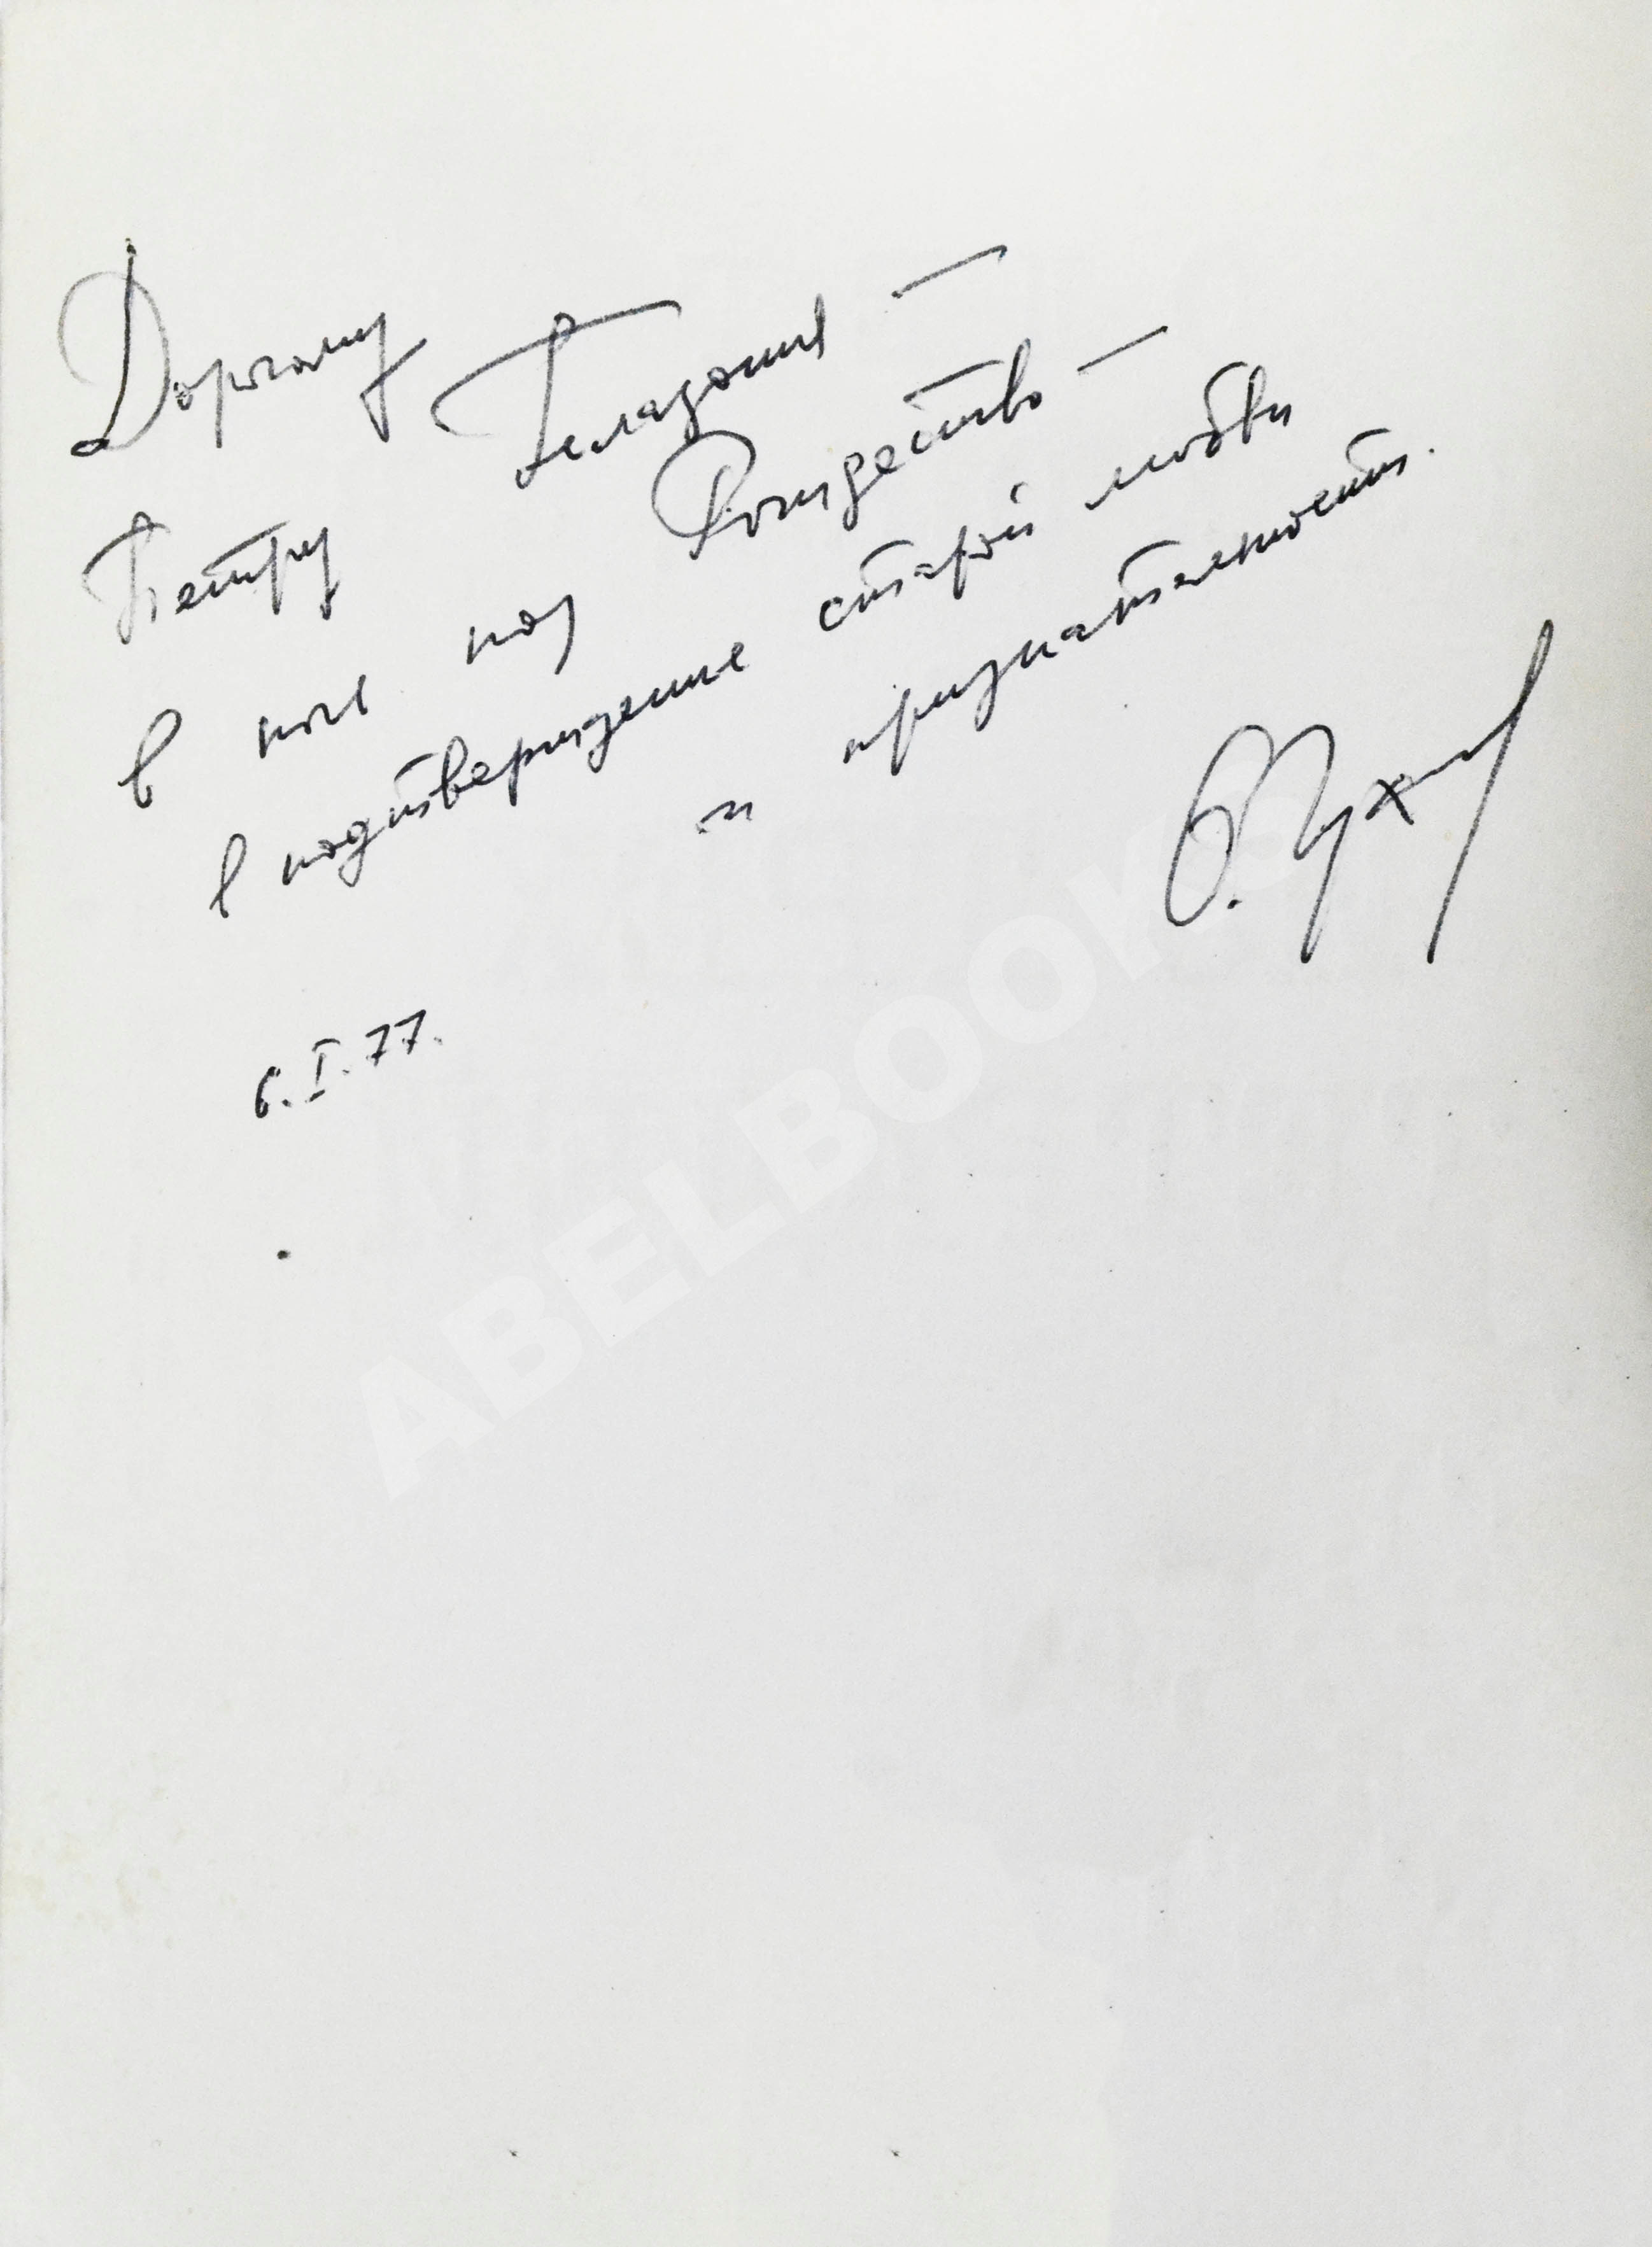 Дорогому
Петру Гелазония —
в ночь под Рождество —
в подтверждение старой любви
и признательности.
О. Чух
6.I.77.
ABELBOOKS